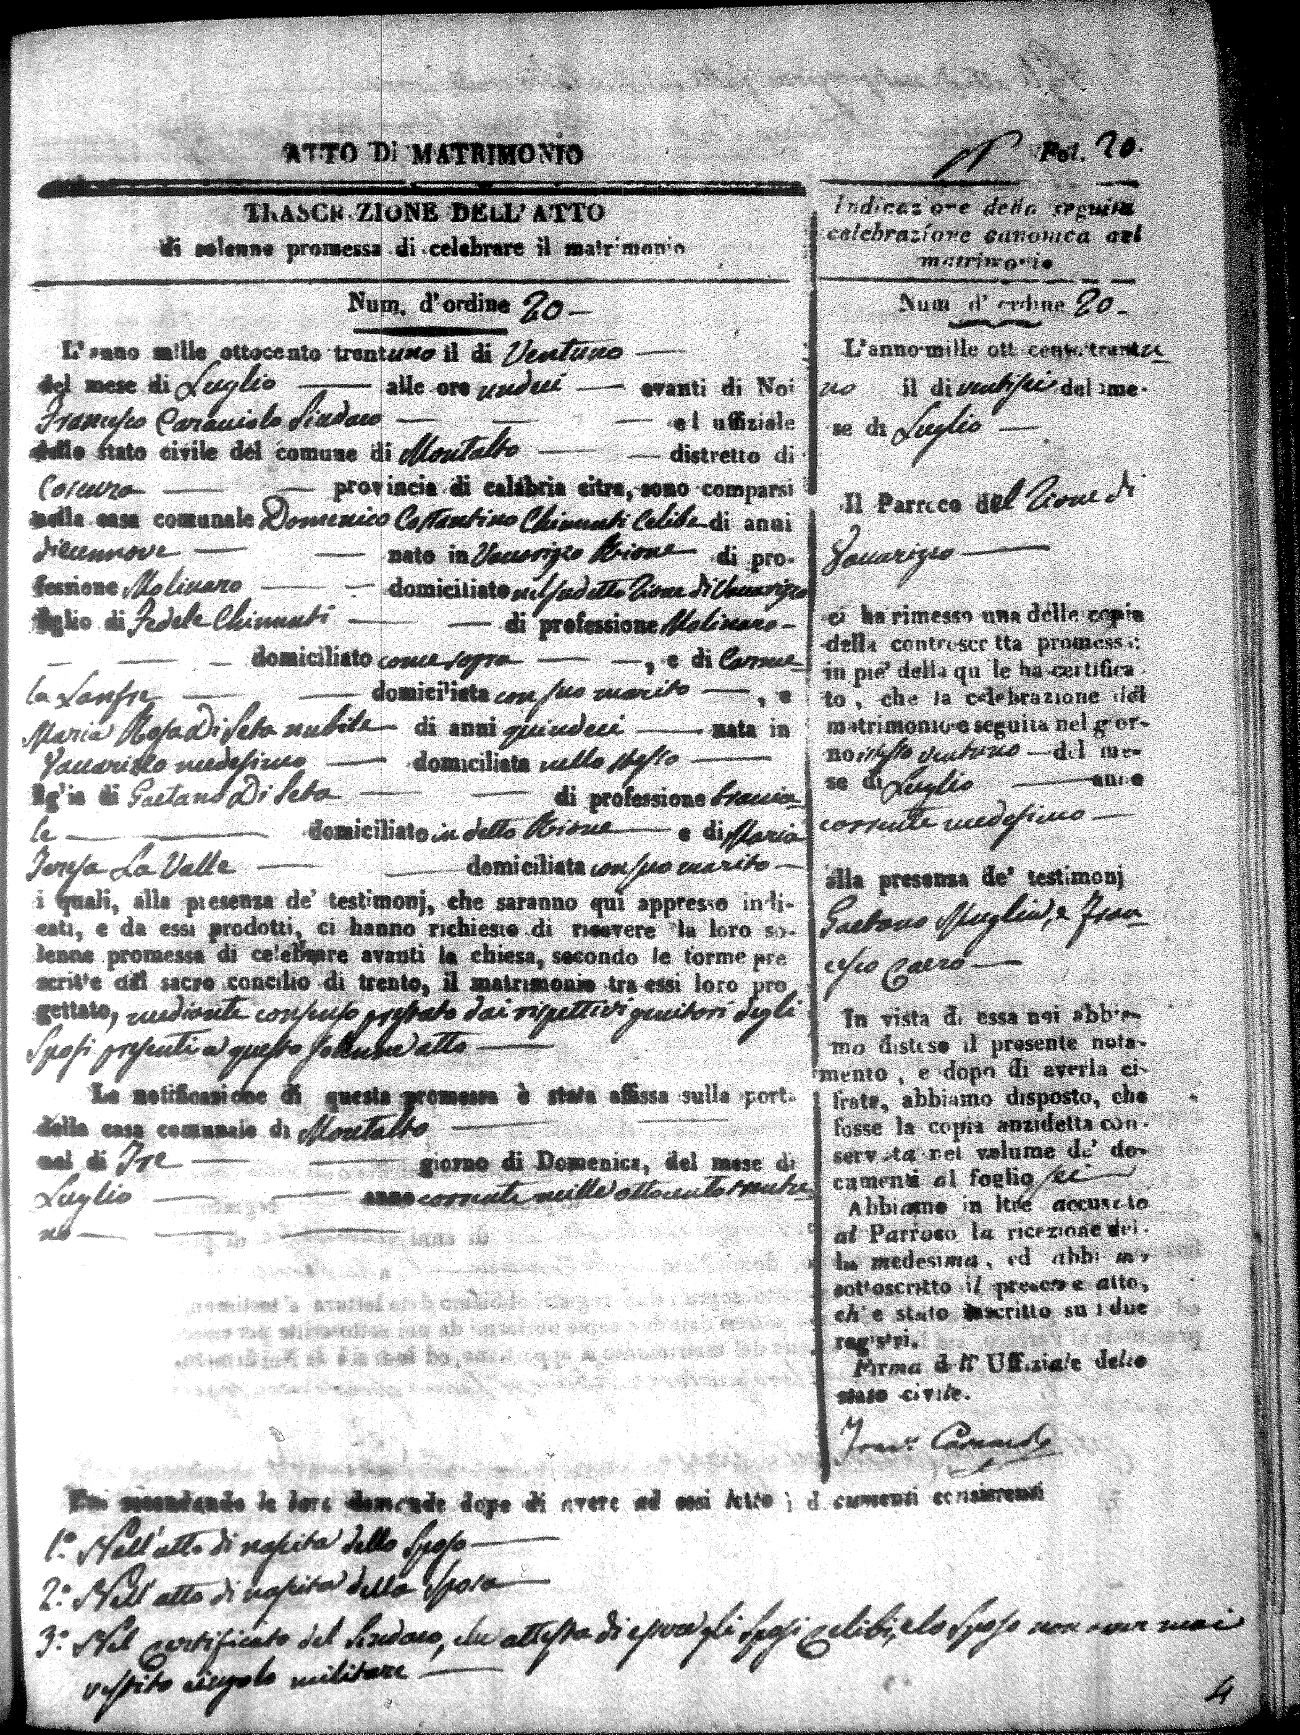 ATTO DI MATRIMONIO
Fol. 20.
TRASCRIZIONE DELL'ATTO
di solenne promessa di celebrare il matrimonio
Num. d'ordine 20
L'anno mille ottocento trentuno il di Ventuno
del mese di Luglio alle ore undeci avanti di Noi
Francesco Caraviolo Sindaco ed uffiziale
dello stato civile del comune di Montalto distretto di
Cosenza provincia di calabria citra, sono comparsi
nella casa comunale Domenico Costantino Chimenti Celibe di anni
diecennove nato in Vaccarizzo Rione di pro-
fessione Molinaro domiciliato nel sudetto Rione di Vaccarizzo
figlio di Fedele Chimenti di professione Molinaro
domiciliato come sopra, e di Carme
la Lanfre domiciliata con suo marito, e
Maria Rosa Di Seta nubile di anni quindeci nata in
Vaccarizzo medesimo domiciliata nello stesso
figlia di Gaetano Di Seta di professione braccia
le domiciliato in detto Rione e di Maria
Teresa La Valle domiciliata con suo marito
i quali, alla presenza de' testimonj, che saranno qui appresso indi-
cati, e da essi prodotti, ci hanno richiesto di ricevere la loro so-
lenne promessa di celebrare avanti la chiesa, secondo le forme pre
scritte dal sacro concilio di trento, il matrimonio tra essi loro pro
gettato, mediante consenso prestato dai rispettivi genitori degli
Sposi presenti a questo solenne atto
La notificazione di questa promessa è stata affissa sulla port.
della casa comunale di Montalto
nel di Tre giorno di Domenica, del mese di
Luglio anno corrente mille ottocento trentu
no
Indicazione della seguita
celebrazione canonica del
matrimonio
Num d'ordine 20
L'anno mille ottocento trentu
no il di ventisei del me-
se di Luglio
Il Parroco del Rione di
Vaccarizzo
ci ha rimesso una delle copie
della controscritta promessa:
in pie' della quale ha certifica
to, che la celebrazione del
matrimonio e seguita nel gior-
no istesso ventuno del me-
se di Luglio anno
corrente medesimo
alla presenza de' testimonj
Gaetano Muglia, e Fran
cesco Caero
In vista di essa noi abbia-
mo disteso il presente nota-
mento, e dopo di averla ci-
frata, abbiamo disposto, che
fosse la copia anzidetta con-
servata nel volume de' do-
cumenti al foglio sei
Abbiamo in ltre accusato
al Parroco la ricezione del-
la medesima, ed abbiamo
sottoscritto il presente atto,
ch'e stato inscritto su i due
registri.
Firma dell' Uffiziale dello
stato civile.
Noi secondando le loro domande dopo di avere ad essi letto i documenti consistenti
1.° Nell'atto di nascita dello Sposo
2.° Nell'atto di nascita della Sposa
3.° Nel certificato del Sindaco, che attesta di essere gli Sposi celibi, e lo Sposo non aver mai
vestito cingolo militare
4